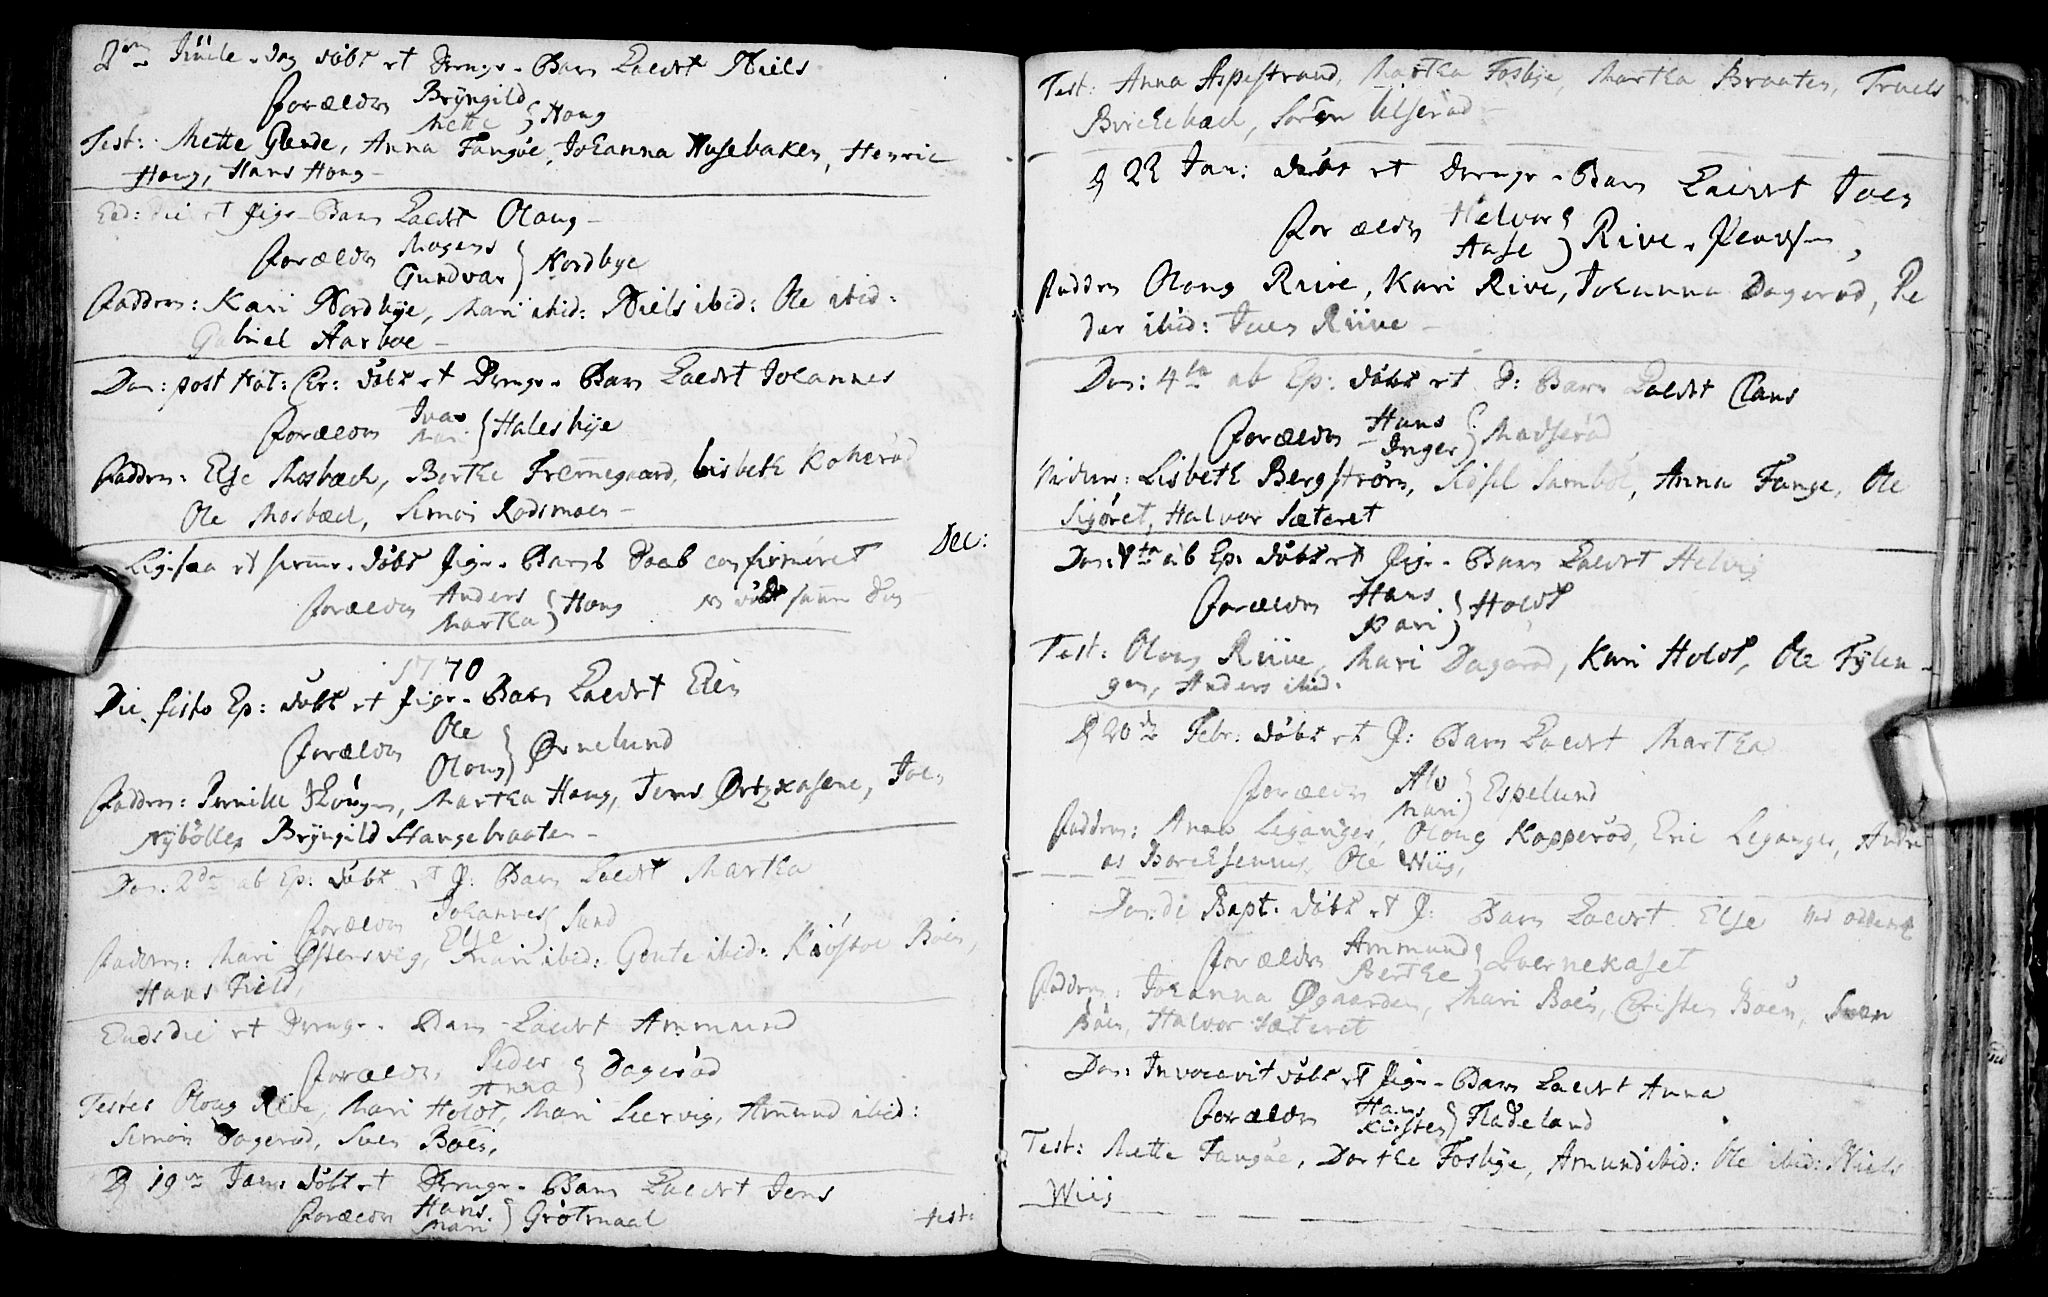 2den Juule-dag döbt et Drenge-Barn kaldt Niels
forældre Bryngild
Mette } Houg
Test: Mette Glende, Anna Tangöe, Johanna Husebaken, Henric
Houg, Hans Houg
Eod: die et Pige-Barn kaldt Oloug
forældre Mogens
Gundvar } Nordbye
faddere: Kari Nordbye, Mari ibid: Niels ibid: Ole ibid:
Gabriel Aarboe
Dom: post Nat: Chr: döbt et Drenge-Barn kaldt Johannes
forældre Ivar
Mari } Halesbye
faddere: Else Mosbæch, Berthe Fremegaard, Lisbeth Kokeröd
Ole Mosbæch, Simon Rodsmoen
Dec:
Ligesaa et hieme-döbt Pige-Barns Daab confirmeret
forældre Anders
Martha } Houg NB död samme Dag
1770
Die festo Ep: döbt et Pige-Barn kaldt Elen
forældre Ole
Oloug } Ørnelund
faddere: Pernille Skougen, Martha Houg, Jens Ørtzkasene, Joen
Nybölles Bryngild Stangebraaten
Dom: 2da ab Ep: döbt et P: Barn kaldt Martha
forældre Johannes
Else } Sand
faddere: Mari Østensvig, Mari ibid: Goute ibid: Kiöstoe Boen,
Hans Field,
Eods die et Drenge-Barn kaldt Ammund
forældre Peder
Anna } Dageröd
Testes Oloug Rive, Mari Holdt, Mari Leervig, Amund ibid:
Simon Dageröd, Sven Boen,
D 19de Jan: döbt et Drenge-Barn kaldt Jens
forældre Hans
Mari } Grötmaal
test:
Test: Anna Aspestrand, Martha Fosbye, Martha Braaten, Truels
Birchebæch, Sören Ulseröd
D 22 Jan: döbt et Drenge-Barn kaldt Joen
forældre Helvor
Aase } Rive
faddere Oloug Riive, Kari Rive, Johanna Dageröd, Pe
der ibid: Joen Riive
Dom: 4ta ab Ep: döbt et D: Barn kaldt Claus
forældre Hans
Inger } Madseröd
Lisbeth Bergström, Sidsel Samböe, Anna Tange, Ole
Sigöret, Halvor Sæteret
Dom: ta ab Ep: döbt et Pige-Barn kaldt Helvig
forældre Hans
Kari } Holdt
Test: Oloug Riive, Mari Dageröd, Kari Holdt, Ole Fylen-
gen, Anders ibid.
D 20de Febr: döbt et P: Barn kaldt Martha
forældre Alv
Mari } Espelund
faddere: Anna Leganger, Oloug Kopperöd, Eric Leganger, Andre
as Borchsenius, Ole Wiig,
Dom: di Bapt: döbt et P: Barn kaldt Else
forældre Ammund
Berthe } Qvernekaset
faddere: Johanna Øgaarden, Mari Boen, Christen Boen, Sven
Boen, Halvor Sæteret
Dom: Invocavit döbt et Pige-Barn kaldt Anna
forældre Hans
Kirsten } Fladeland
Test: Mette Tangöe, Dorthe Fosbye, Amund ibid: Ole ibid: Niels
Wiig